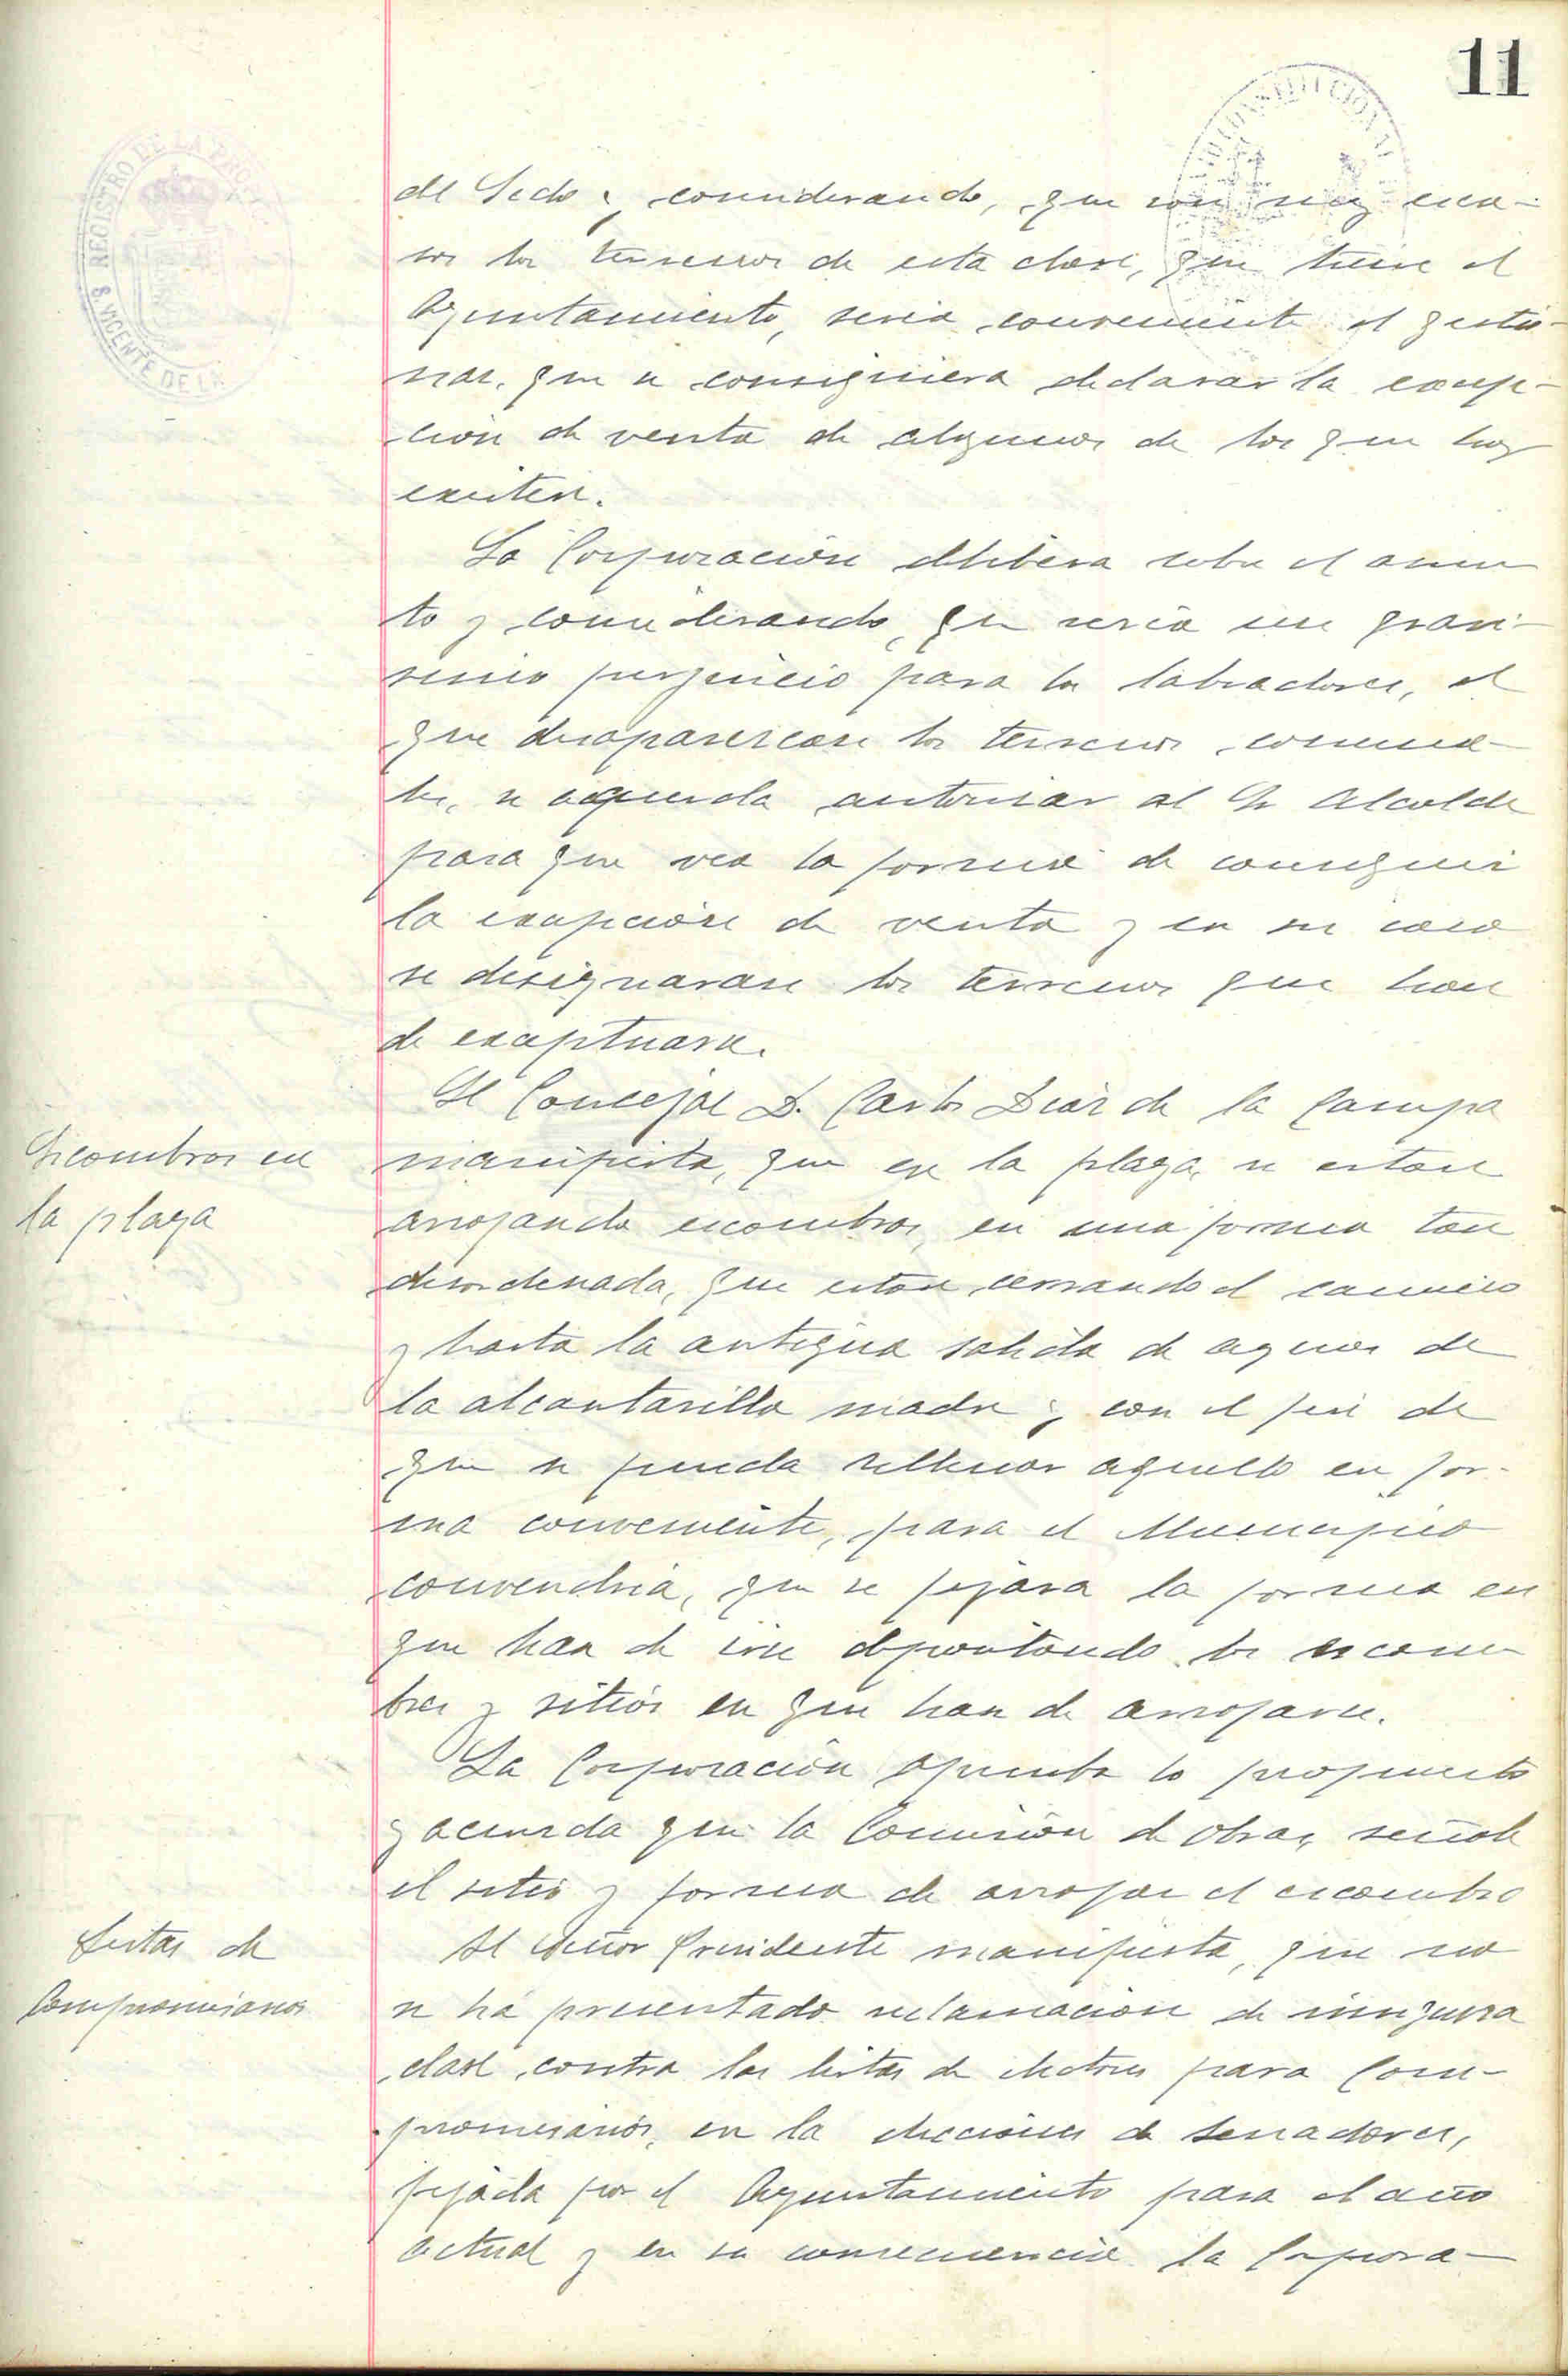 11
REGISTRO DE LA PROPIEDAD
S. VICENTE DE LA
CONSTITUCIONAL
del Sedo y considerando, que son muy esca-
sos los terrenos de esta clase, que tiene el
Ayuntamiento, seria conveniente el gestio-
nar, que se consiguiera declarar la excep-
cion de venta de algunos de los que hoy
existen.
La Corporación delibera sobre el asun
to y considerando, que seria un graví-
simo perjuicio para los labradores, el
que desapareciesen los terrenos comuna-
les, se acquerda autorizar al Sr Alcalde
para que vea la forma de conseguir
la excepción de venta y en su caso
se designaran los terrenos que han
de exceptuarse.
Escombros en
la plaza
El Concejal D. Carlos Diaz de la Campa
manifiesta, que en la plaza, se estan
arrojando escombros, en una forma tan
desordenada, que estan cerrando el camino
y hasta la antigua salida de aguas de
la alcantarilla madre y con el fin de
que se pueda rellenar aquello en for-
ma conveniente, para el Municipio
convendria, que se fijara la forma en
que han de irse depositando los escom
bros y sitios en que han de arrojarse.
La Corporación aprueba lo propuesto
y acuerda que la Comisión de obras, señale
el sitio y forma de arrojar el escombro
Listas de
Compromisarios
El Señor Presidente manifiesta, que no
se há presentado reclamación de ninguna
clase contra las listas de electores para Com-
promisarios, en la elecciones de senadores,
fijada por el Ayuntamiento para el año
actual y en su consecuencia la Corpora-